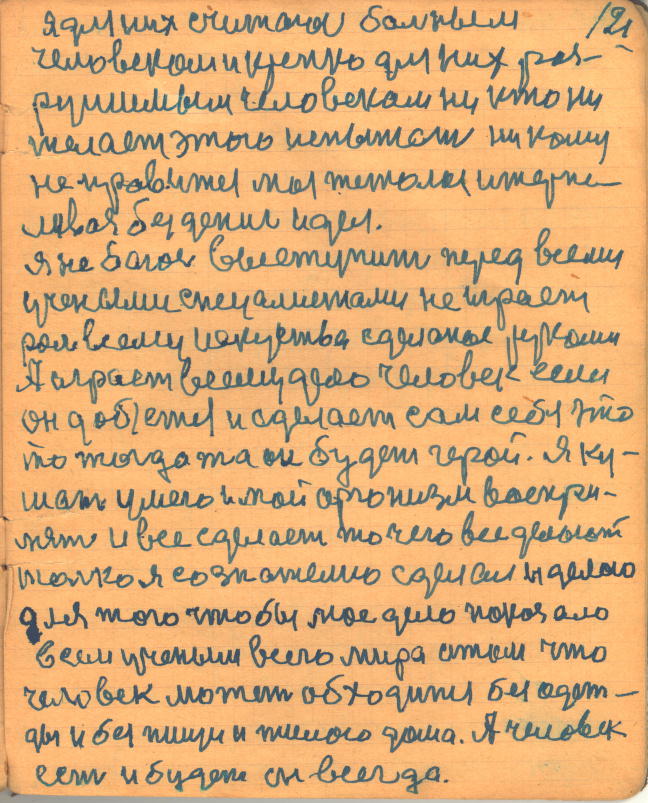 121
я для них считаюсь больным
человеком и крепко для них раз-
рушимым человекам ни кто ни
желает этого испытать ни кому
не нравится моя тяжолая и терпе-
ливая без дения идея.
я не боюсь выступить перед всеми
учеными специалистами не играет
роль всему искуства сделаное руками
А играет всему дело человек если
он добется и сделает сам себя это
то тогда та он будет герой. Я ку-
шать умею и мой организм воспри-
мят и все сделает то чего все делают
толко я сознателно сделал и делаю
для того чтобы мое дело показало
всем ученым всего мира о том что
человек может обходится без одеж-
ды и без пищи и жилого дома. А человек
есть и будет он всегда.